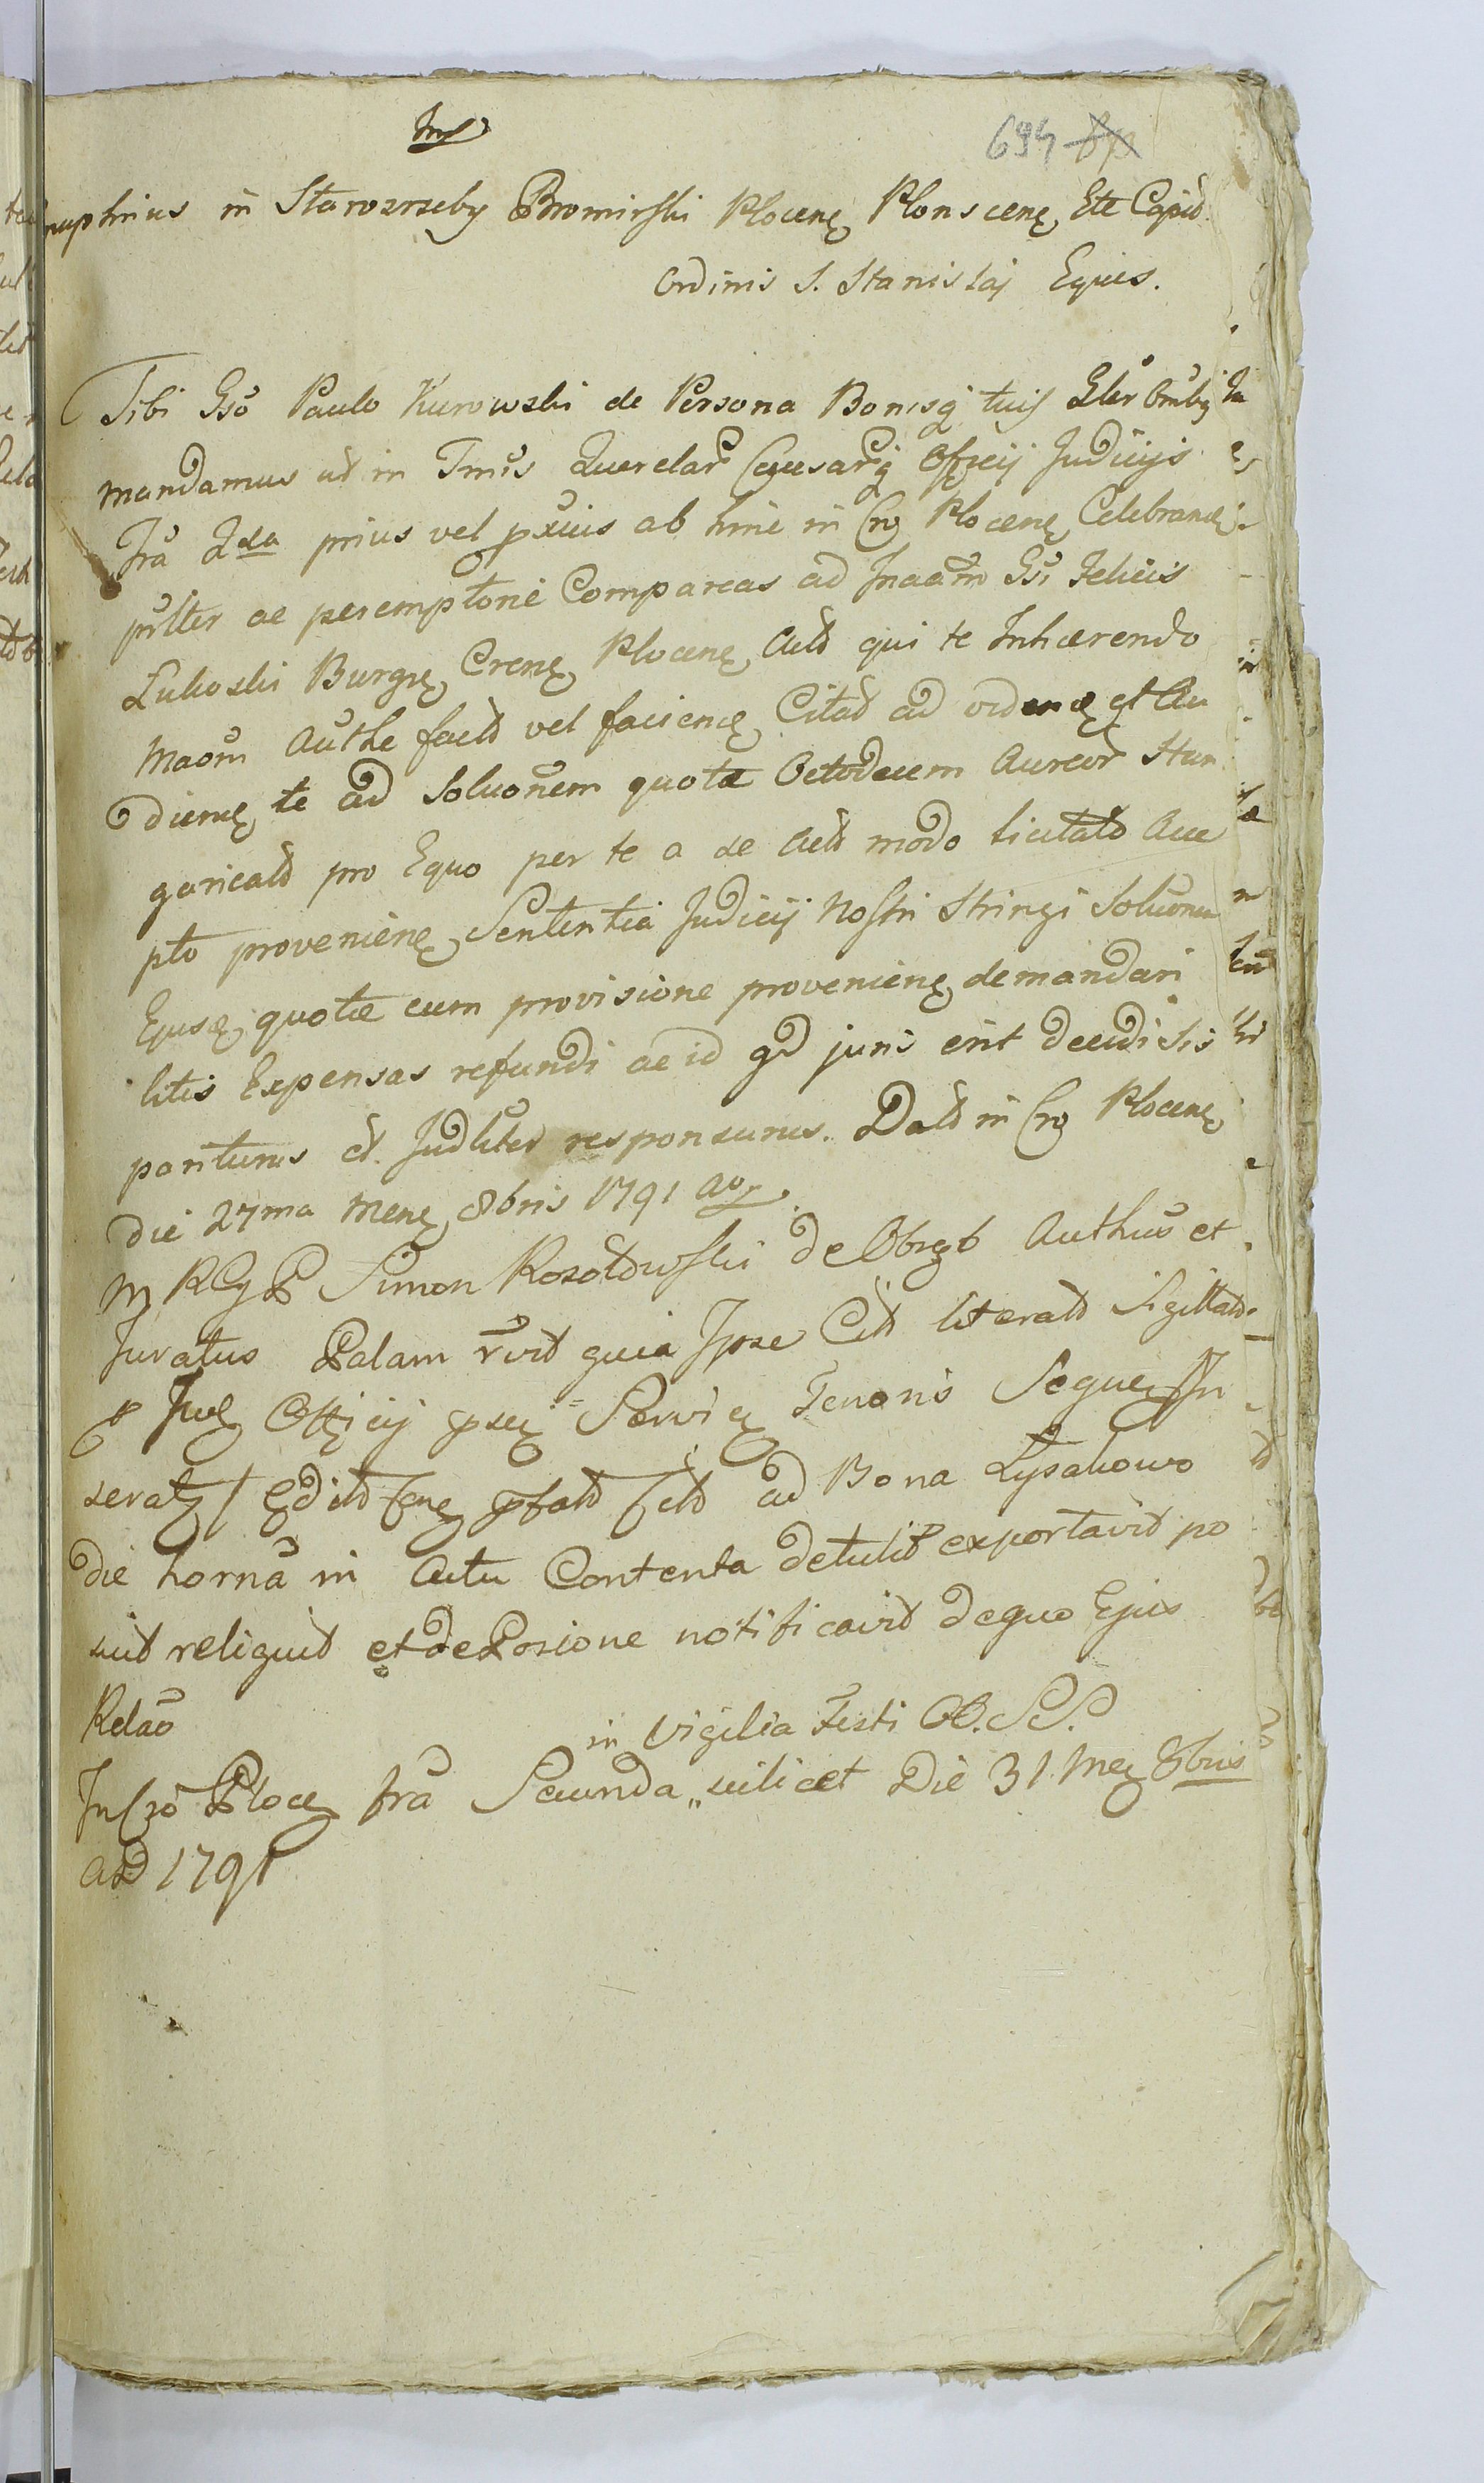 694
nuphrius in Starozrzeby Bromirski Plocenę Plonscenę Ett Capid.
Ordinis S. Stanislaj Eques.
Tibi Gso Paulo Kurowski de Persona Bonisq tuis Gler Ombq
mandamus ut in Tmis Querelar Causarq Officij Judicijs
fra 2da prius vel pxius ab hinc in Cro Plocenę Celebrandę
pslter ac peremptorie Compareas ad Jnaam Gsi Felicis
Lukoski Burgrę Crenę Plocenę Actd qui te Inhærendo
Maom Authe factd vel faciendę Citad ad videndę et Au
diendę te ad Soluonem quotæ Octodecem Aureor Hun
garicald pro Equo per te a se Actd modo licitatd Acce
pto provenienę Sententia Judicij Nostri Stringi Soluonem
Ejusdę quotæ cum provisione provenienę demandari
litis Expensas refundi ac id qd juris erit decidi sis
pariturus et Judliter responsurus. Datd in Cro Plocenę
die 27ma Menę 8bris 1791 ao.
M RGP Simon Rosołowski de Obrgb Authus et
Juratus Palam rvit quia Ipse Citt literatd Sigillatd
Officij Tenoris Sequen In
ad Bona Lysakowo
die horna in Actu Contenta detulit exportavit po
suit reliquit et de Posione notificavit de quo Ejus
Relao
in Vigilia Festi OO. SS.
In Cro Plocę fra Secunda scilicet Die 31 Menę 8bris
aD 1791